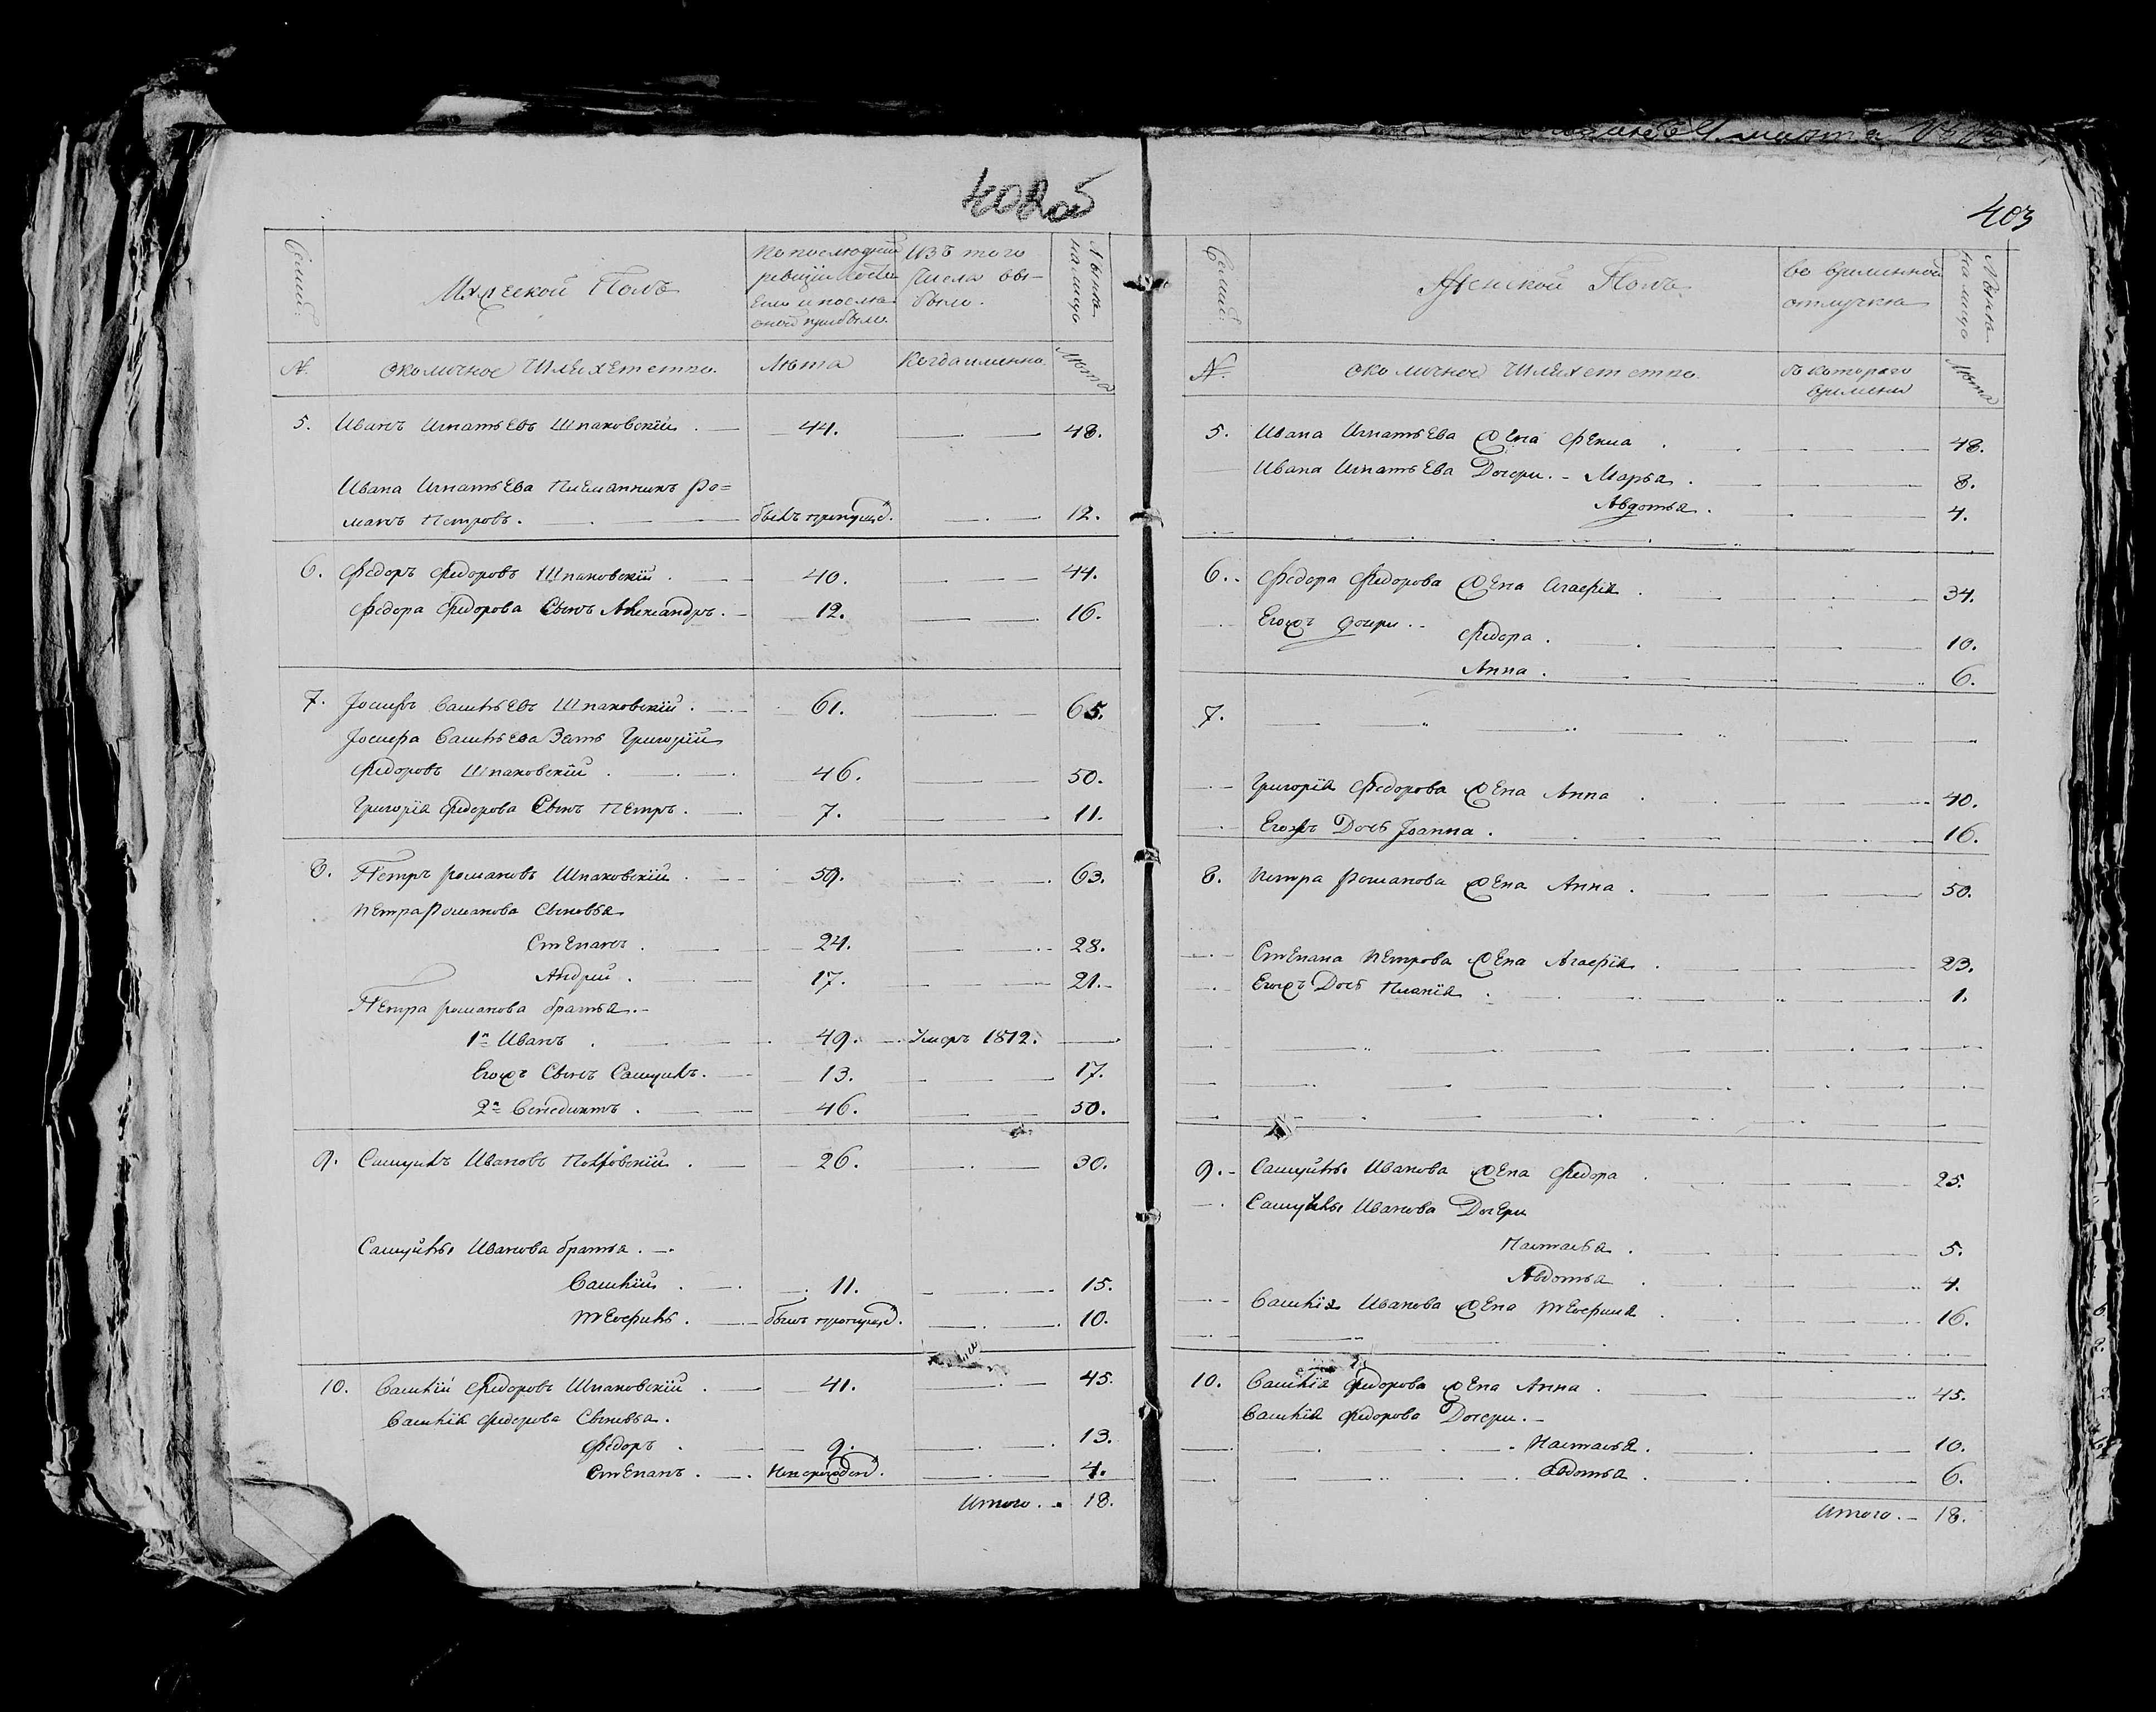 402об
Семьи.
Мужеской Полъ
По последней
ревизіи состо
яло и после
оной прибыло.
Изъ того
Числа вы-
было.
Ныне
на лицо
№.
Околичное Шляхетство.
Лѣта
Когда именно.
Лѣта
5. Иванъ Игнатьевъ Шпаковскій. 44. 48.
Ивана Игнатьева Племянникъ Ро=
манъ Петровъ. былъ пропущ. 12.
6. Федоръ Федоровъ Шпаковскій. 40. 44.
Федора Федорова Сынъ Александръ. 12. 16.
7. Іосифъ Васильевъ Шпаковскій. 61. 65.
Іосифа Васильева Зять Григорій
Федоровъ Шпаковскій. 46. 50.
Григорія Федорова Сынъ Петръ. 7. 11.
8. Петръ Романовъ Шпаковскій. 59. 63.
Петра Романова Сыновья
Степанъ. 24. 28.
Андрей. 17. 21.
Петра Романова братья.
1й Иванъ. 49. Умеръ 1812.
Егожъ Сынъ Самуилъ. 13. 17.
2й Венедиктъ. 46. 50.
9. Самуилъ Ивановъ 26. 30.
Самуилы Иванова братья.
Василій. 11. 15.
былъ пропущ. 10.
10. Василій Федоровъ Шпаковскій. 41. 45.
Василія Федорова Сыновья.
Федоръ. 9. 13.
Степанъ. 4.
Итого. 18.
403
Семьи.
Женской Полъ
во временной
отлучке
Ныне
на лицо
№.
Околичное Шляхетство.
съ котораго
времени
Лѣта
5. Ивана Игнатьева жена 48.
Ивана Игнатьева Дочери. - Марья. 8.
Авдотья. 4.
6. Федора Федорова жена Агафія. 34.
Егожъ дочери. -
Федора. 10.
Анна. 6.
7.
Григорія Федорова жена Анна. 40.
Егожъ Дочь Іоанна. 16.
8. Петра Романова жена Анна. 50.
Степана Петрова жена Агафія. 23.
Егожъ Дочь 1.
9. Самуилы Иванова жена Федора. 25.
Самуилы Иванова Дочери
Настасья. 5.
Авдотья. 4.
Василія Иванова жена 16.
10. Василія Федорова жена Анна. 45.
Василія Федорова Дочери.
Настасья. 10.
Авдотья. 6.
Итого. 18.